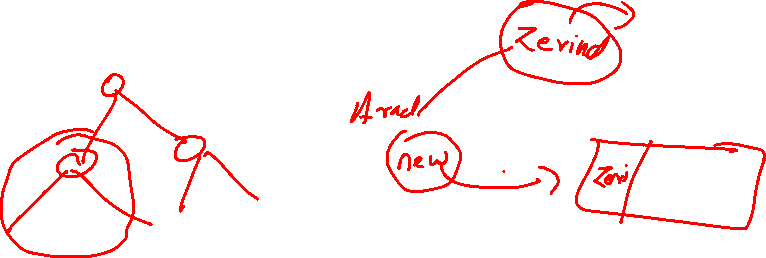 Zerind
Arad
new
Zeri